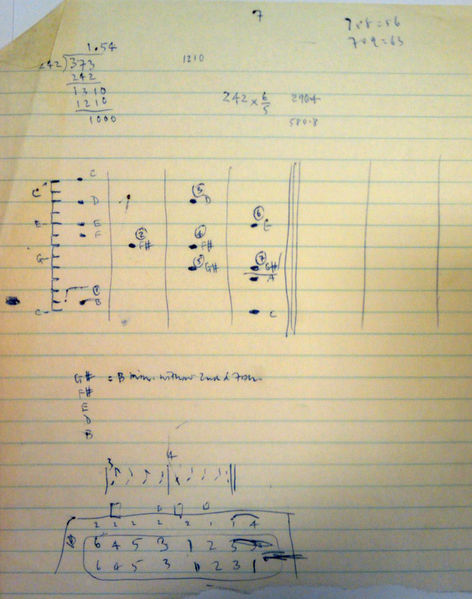 7
7 × 8 = 56
7 × 9 = 63
1.54
242)373
242
1310
1210
1000
1210
242 × 6/5
2904
580.8
C
C
D
5
D
E
E
6
E
F
2
F#
4
F#
G
3
G#
7
G#
A
1
B
C
C
G# = B min. without 2nd & 7th
F#
E
D
B
3
4
2 2 2 2 2 1 1 4
6 4 5 3 1 2 3
6 4 5 3 1 2 3 1